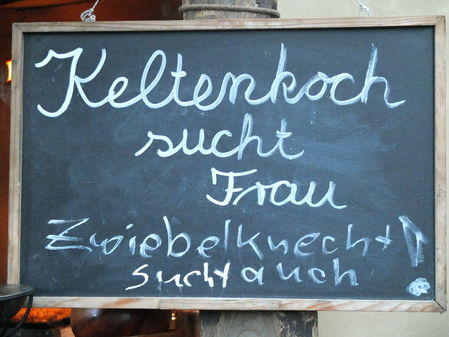 Keltenkoch
sucht
Frau
Zwiebelknecht!
sucht auch